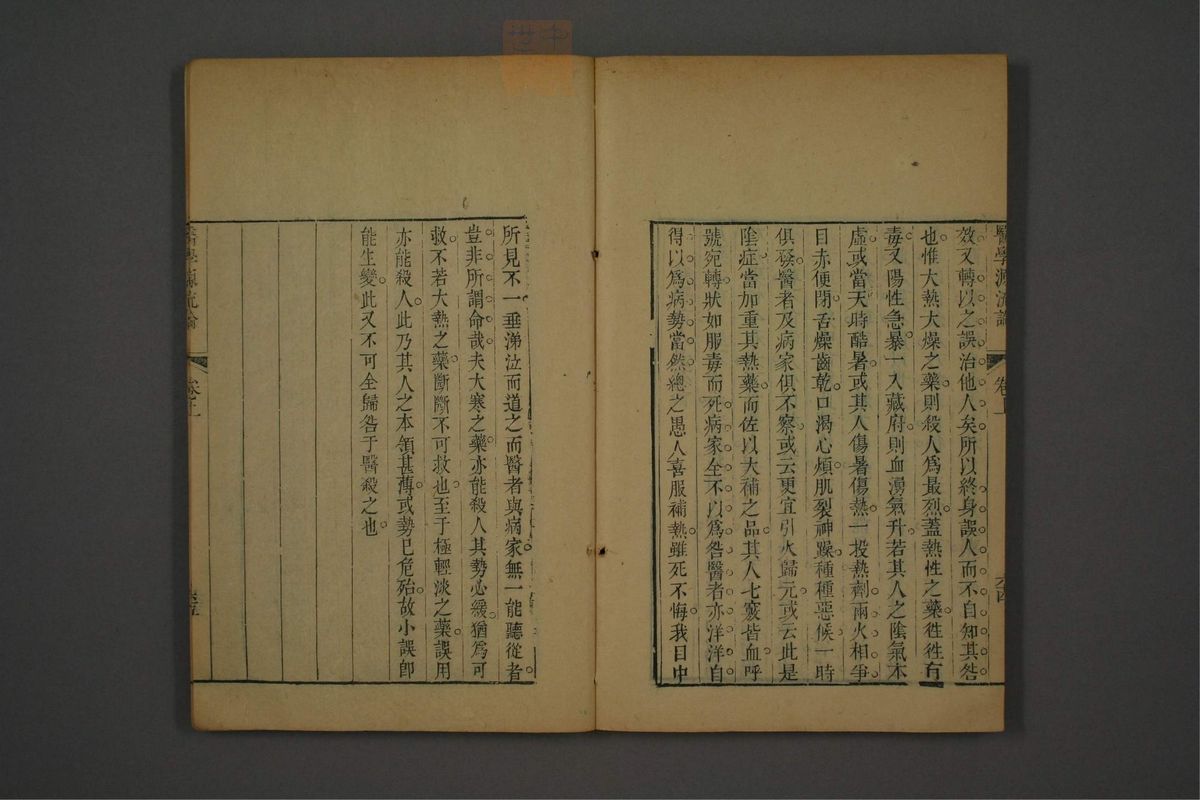 醫學源流論 卷上 六四
效又轉以之誤治他人矣所以終身誤人而不自知其咎
也惟大熱大燥之藥則殺人爲最烈蓋熱性之藥徃徃有
毒又陽性急暴一入藏府則血湧氣升若其人之陰氣本
虛或當天時酷暑或其人傷暑傷熱一投熱劑兩火相爭
目赤便閉舌燥齒乾口渴心煩肌裂神躁種種惡候一時
俱發醫者及病家俱不察或云更宜引火歸元或云此是
陰症當加重其熱藥而佐以大補之品其人七竅皆血呼
號宛轉狀如服毒而死病家全不以爲咎醫者亦洋洋自
得以爲病勢當然總之愚人喜服補熱雖死不悔我目中
所見不一垂涕泣而道之而醫者與病家無一能聽從者
豈非所謂命哉夫大寒之藥亦能殺人其勢必緩猶爲可
救不若大熱之藥斷斷不可救也至于極輕淡之藥誤用
亦能殺人此乃其人之本領甚薄或勢已危殆故小誤卽
能生變此又不可全歸咎于醫殺之也
醫學源流論 卷上